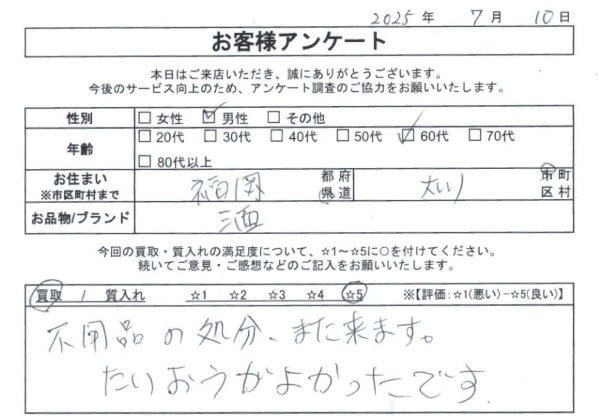 2025年 7月 10日
お客様アンケート
本日はご来店いただき、誠にありがとうございます。
今後のサービス向上のため、アンケート調査のご協力をお願いいたします。
性別 □女性 ☑男性 □その他
年齢 □20代 □30代 □40代 □50代 ☑60代 □70代
□80代以上
お住まい ※市区町村まで 福岡 都府県道 市町区村
お品物/ブランド 酒
今回の買取・質入れの満足度について、☆1～☆5に○を付けてください。
続いてご意見・ご感想などのご記入をお願いいたします。
買取 / 質入れ ☆1 ☆2 ☆3 ☆4 ☆5 ※【評価:☆1(悪い)-☆5(良い)】
不用品の処分、また来ます。
たいおうがよかったです